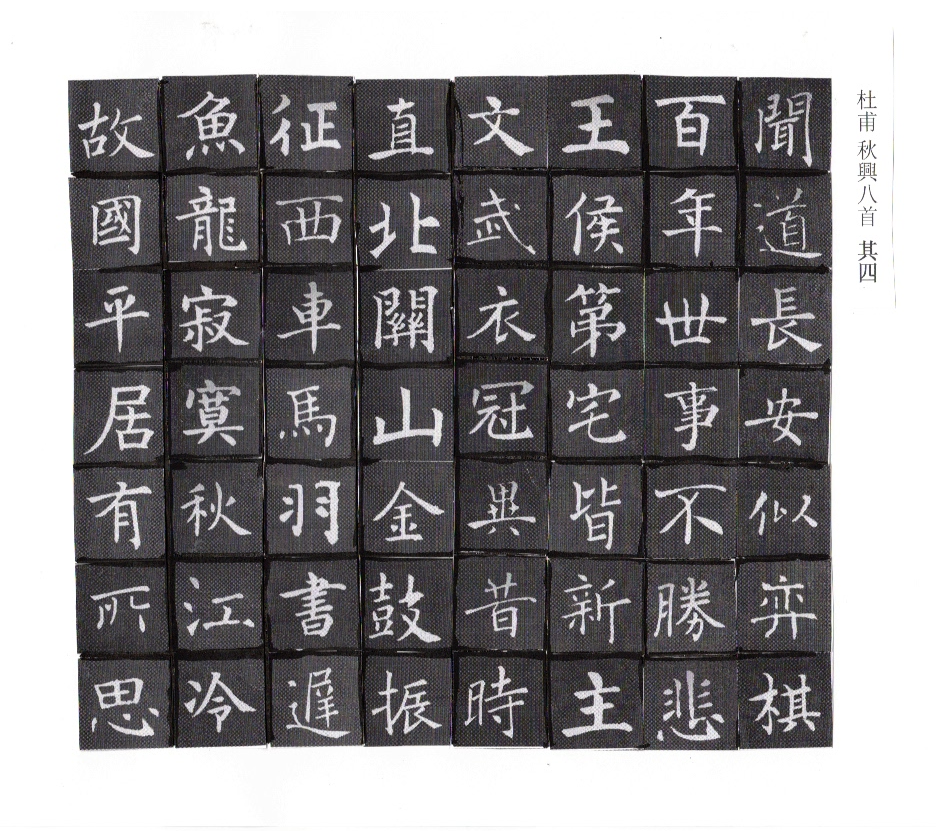 杜甫 秋興八首 其四
聞道長安似弈棋
百年世事不勝悲
王侯第宅皆新主
文武衣冠異昔時
直北關山金鼓振
征西車馬羽書遲
魚龍寂寞秋江冷
故國平居有所思